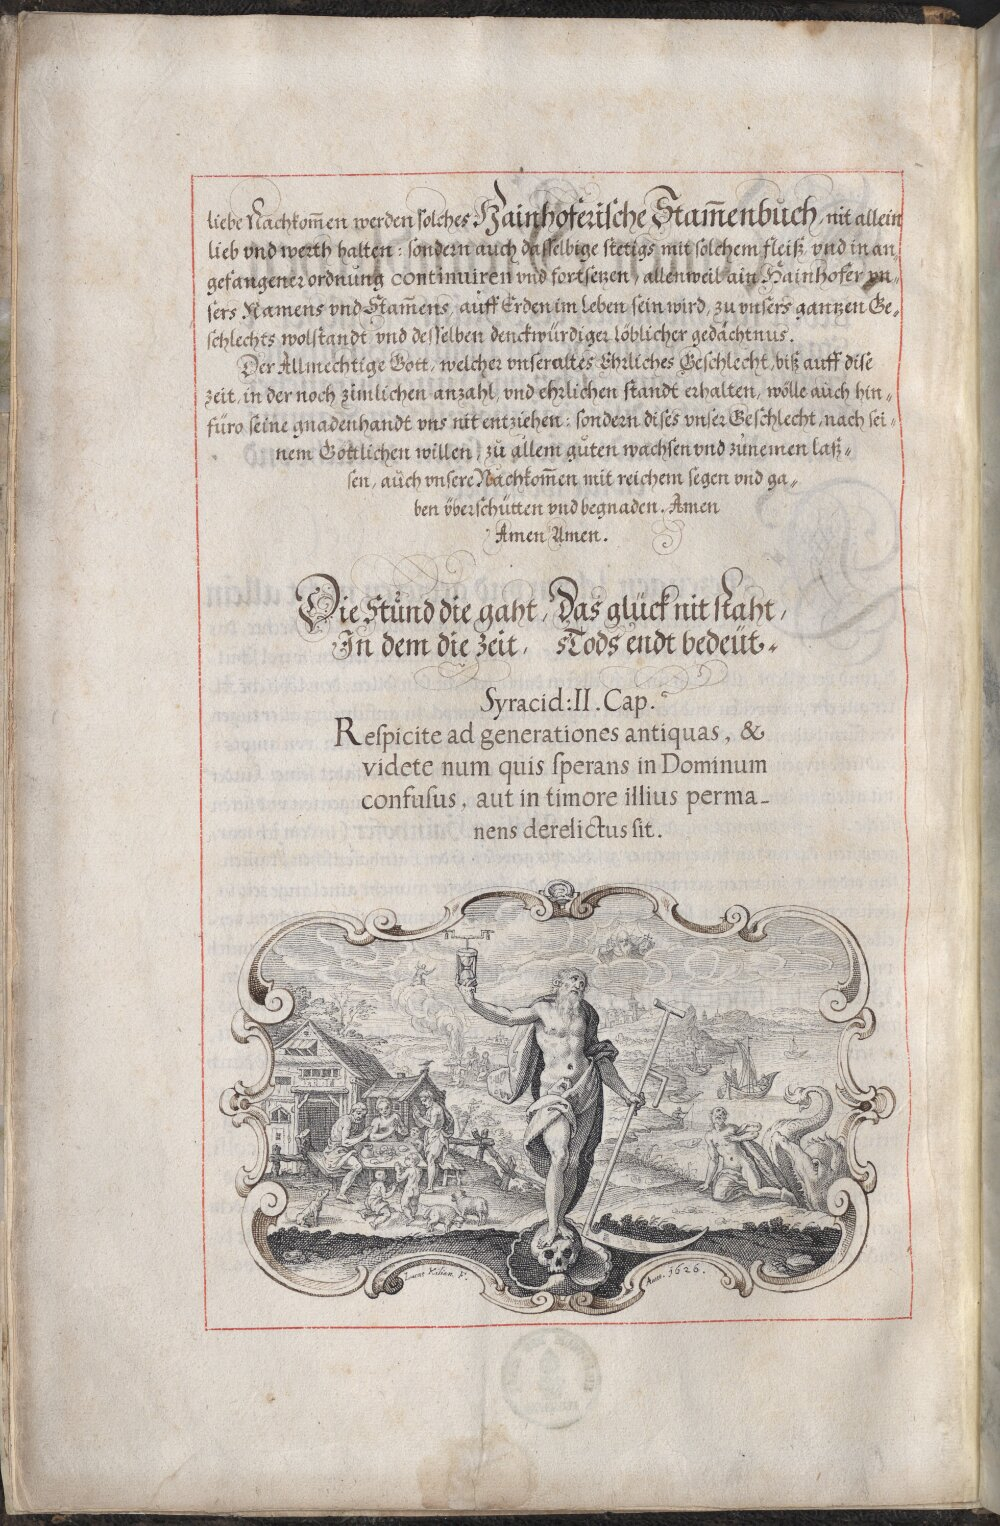 liebe Nachkom̅en werden solches Hainhoferische Stam̅enbuch, nit allein
lieb vnd werth halten: sondern auch dasselbige stetigs mit solchem fleiß, vnd in an„
gefangener ordnung continuiren vnd fortsetzen, allenweil ain Hainhofer vn„
sers Namens vnd Stam̅ens, auff Erden im leben sein wird, zu vnsers gantzen Ge„
schlechts wolstandt, vnd desselben denckwürdiger löblicher gedächtnus.
Der Allmechtige Gott, welcher vnser altes Ehrliches Geschlecht, biß auff dise
zeit, in der noch zimlichen anzahl, vnd ehrlichen standt erhalten, wölle auch hin„
füro seine gnadenhandt vns nit entziehen: sondern dises vnser Geschlecht, nach sei„
nem Göttlichen willen, zu allem guten wachsen vnd zunemen laß„
sen, auch vnsere Nachkom̅en mit reichem segen vnd ga„
ben vberschütten vnd begnaden. Amen
Amen Amen.
Die Stund die gaht, Das glück nit staht,
In dem die Zeit, sTods endt bedeüt„
Syracid: II. Cap.
Respicite ad generationes antiquas, &
videte num quis sperans in Dominum
confusus, aut in timore illius perma_
nens derelictus sit.
Lucas Kilian F.
Anno. 1626.